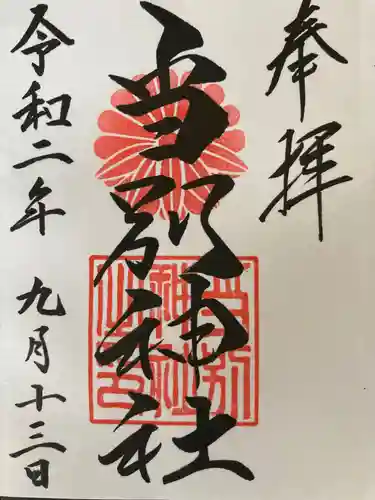 奉拝
当別神社
令和二年 九月十三日
当別
神社
之印